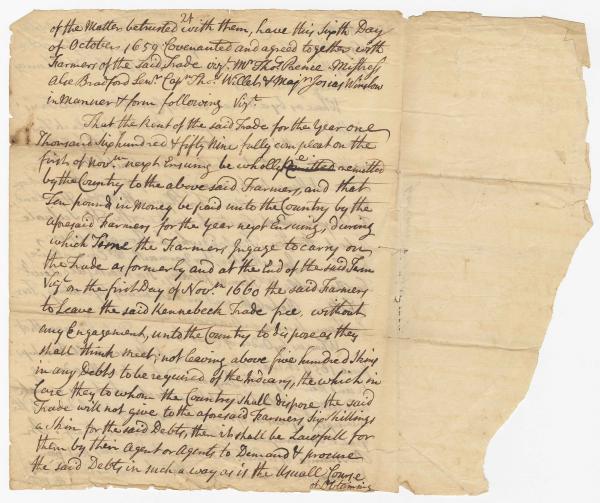 24
of the Matter betrusted with them, have this Sixth Day
of October 1659 Covenanted and agreed together with
Farmers of the said Trade viz.t Mr. Tho.s Prence Mistress
Alce Bradford Sen.r Cap.tn Tho.s Willet & Maj.r Josias Winslow
in Manner & form following Viz.t
That the Rent of the said Trade for the Year one
Thousand Six hundred & fifty Nine fully compleat on the
first of Nov.m next Ensuing be wholly remitted
by the Country to the above said Farmers, and that
Ten pound in Money be paid unto the Country by the
aforesaid Farmers for the Year next Ensuing, during
which Time the Farmers Ingage to carry on
the Trade as formerly and at the End of the said Term
Viz.t on the first Day of Nov.m 1660 the said Farmers
to leave the said Kennebeck Trade free, without
any Engagement, unto the Country to dispose as they
shall think meet; not leaving above five hundred Skins
in any Debts to be required of the Indians, the which in
Case they to whom the Country shall dispose the said
Trade will not give to the aforesaid Farmers Six Shillings
a Skin for the said Debts, then it shall be Lawfull for
them by their Agent or Agents to Demand & procure
the said Debts in such a way as is the Usuall Course
of